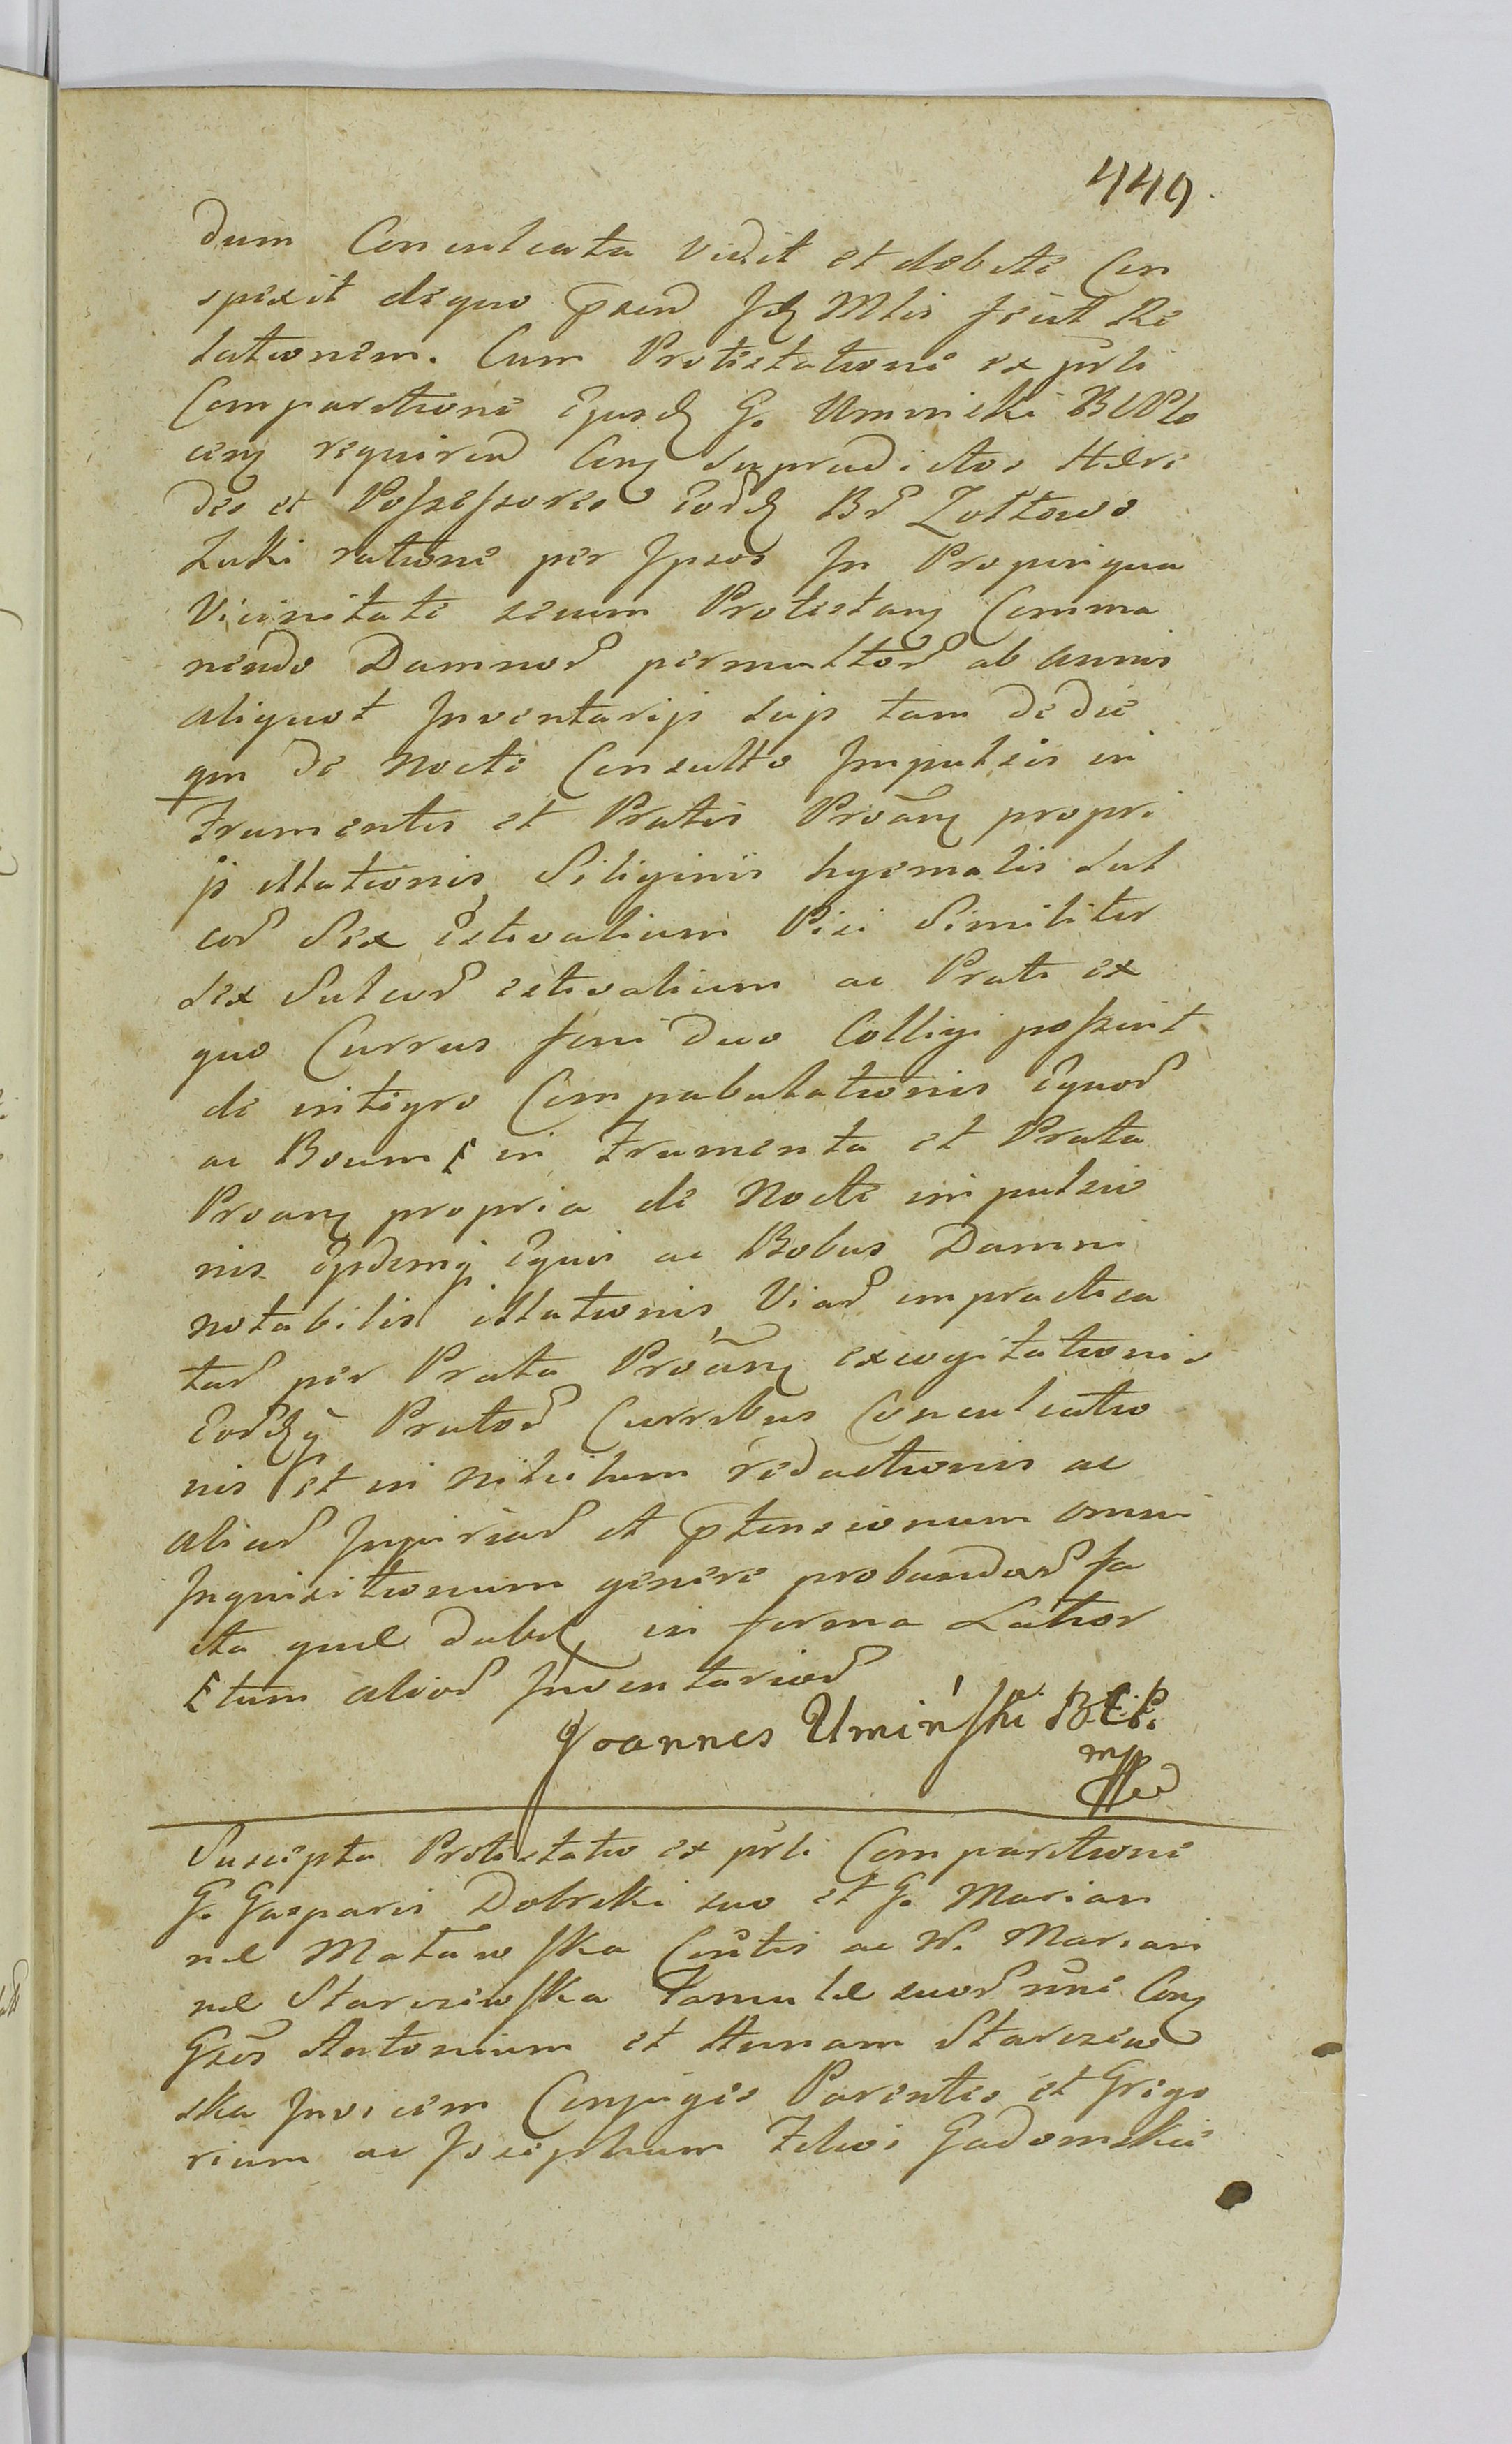 449.
dum Conculcata vidit et debite Con
spexit dequo præsen Idq Mlis fecit Re
lationem. Cum Protestatione ex prsli
Comparitione Ejusdq G. Uminski BCPlo
cenq requiren Conq supradictos Hære
des et Possessores eordq Br Zołtowo
Łuki ratione per Ipsos In Propinqua
Vicinitate secum Protestanq Comma
nendo Damnor permultor ab annis
aliquot Inventarijs suis tam de die
qm de nocte Consulto Impulsis in
Frumentis et Pratis Proanq propri
js illationis Siliginis hyemalis Sul
cor Sex Estivalium Pisi Similiter
sex Sulcor estivalium ac Prati ex
quo Currus feni duo Colligi possint
de integro Compabulationis Equor
ac Boum in Frumenta et Prata
Proanq propria de Nocte impulsio
nis Ejsdemq Equis ac Bobus Damni
notabilis illationis Viar impractica
tar per Prata Proanq excogitationis
Eordqq Prator Curribus Conculcatio
nis et in nihilum redactionis ac
aliar Injuriar et ptensionum omni
Inquisitionum genere probandar fa
cta quæ dabq in forma Latior
tum alior Inventarior
Joannes Umiński BCP.
mpp
Suscepta Protestatio ex prsli Comparitione
G. Gasparis Dobrski suo et G. Marian
næ Matawska Contis ac N. Marian
næ Starczewska Famulæ suor nne Conq
Gses Antonium et Annam Starczew
ska Invicem Conjuges Parentes et Grego
rium ac Josephum Filios Gadomskie